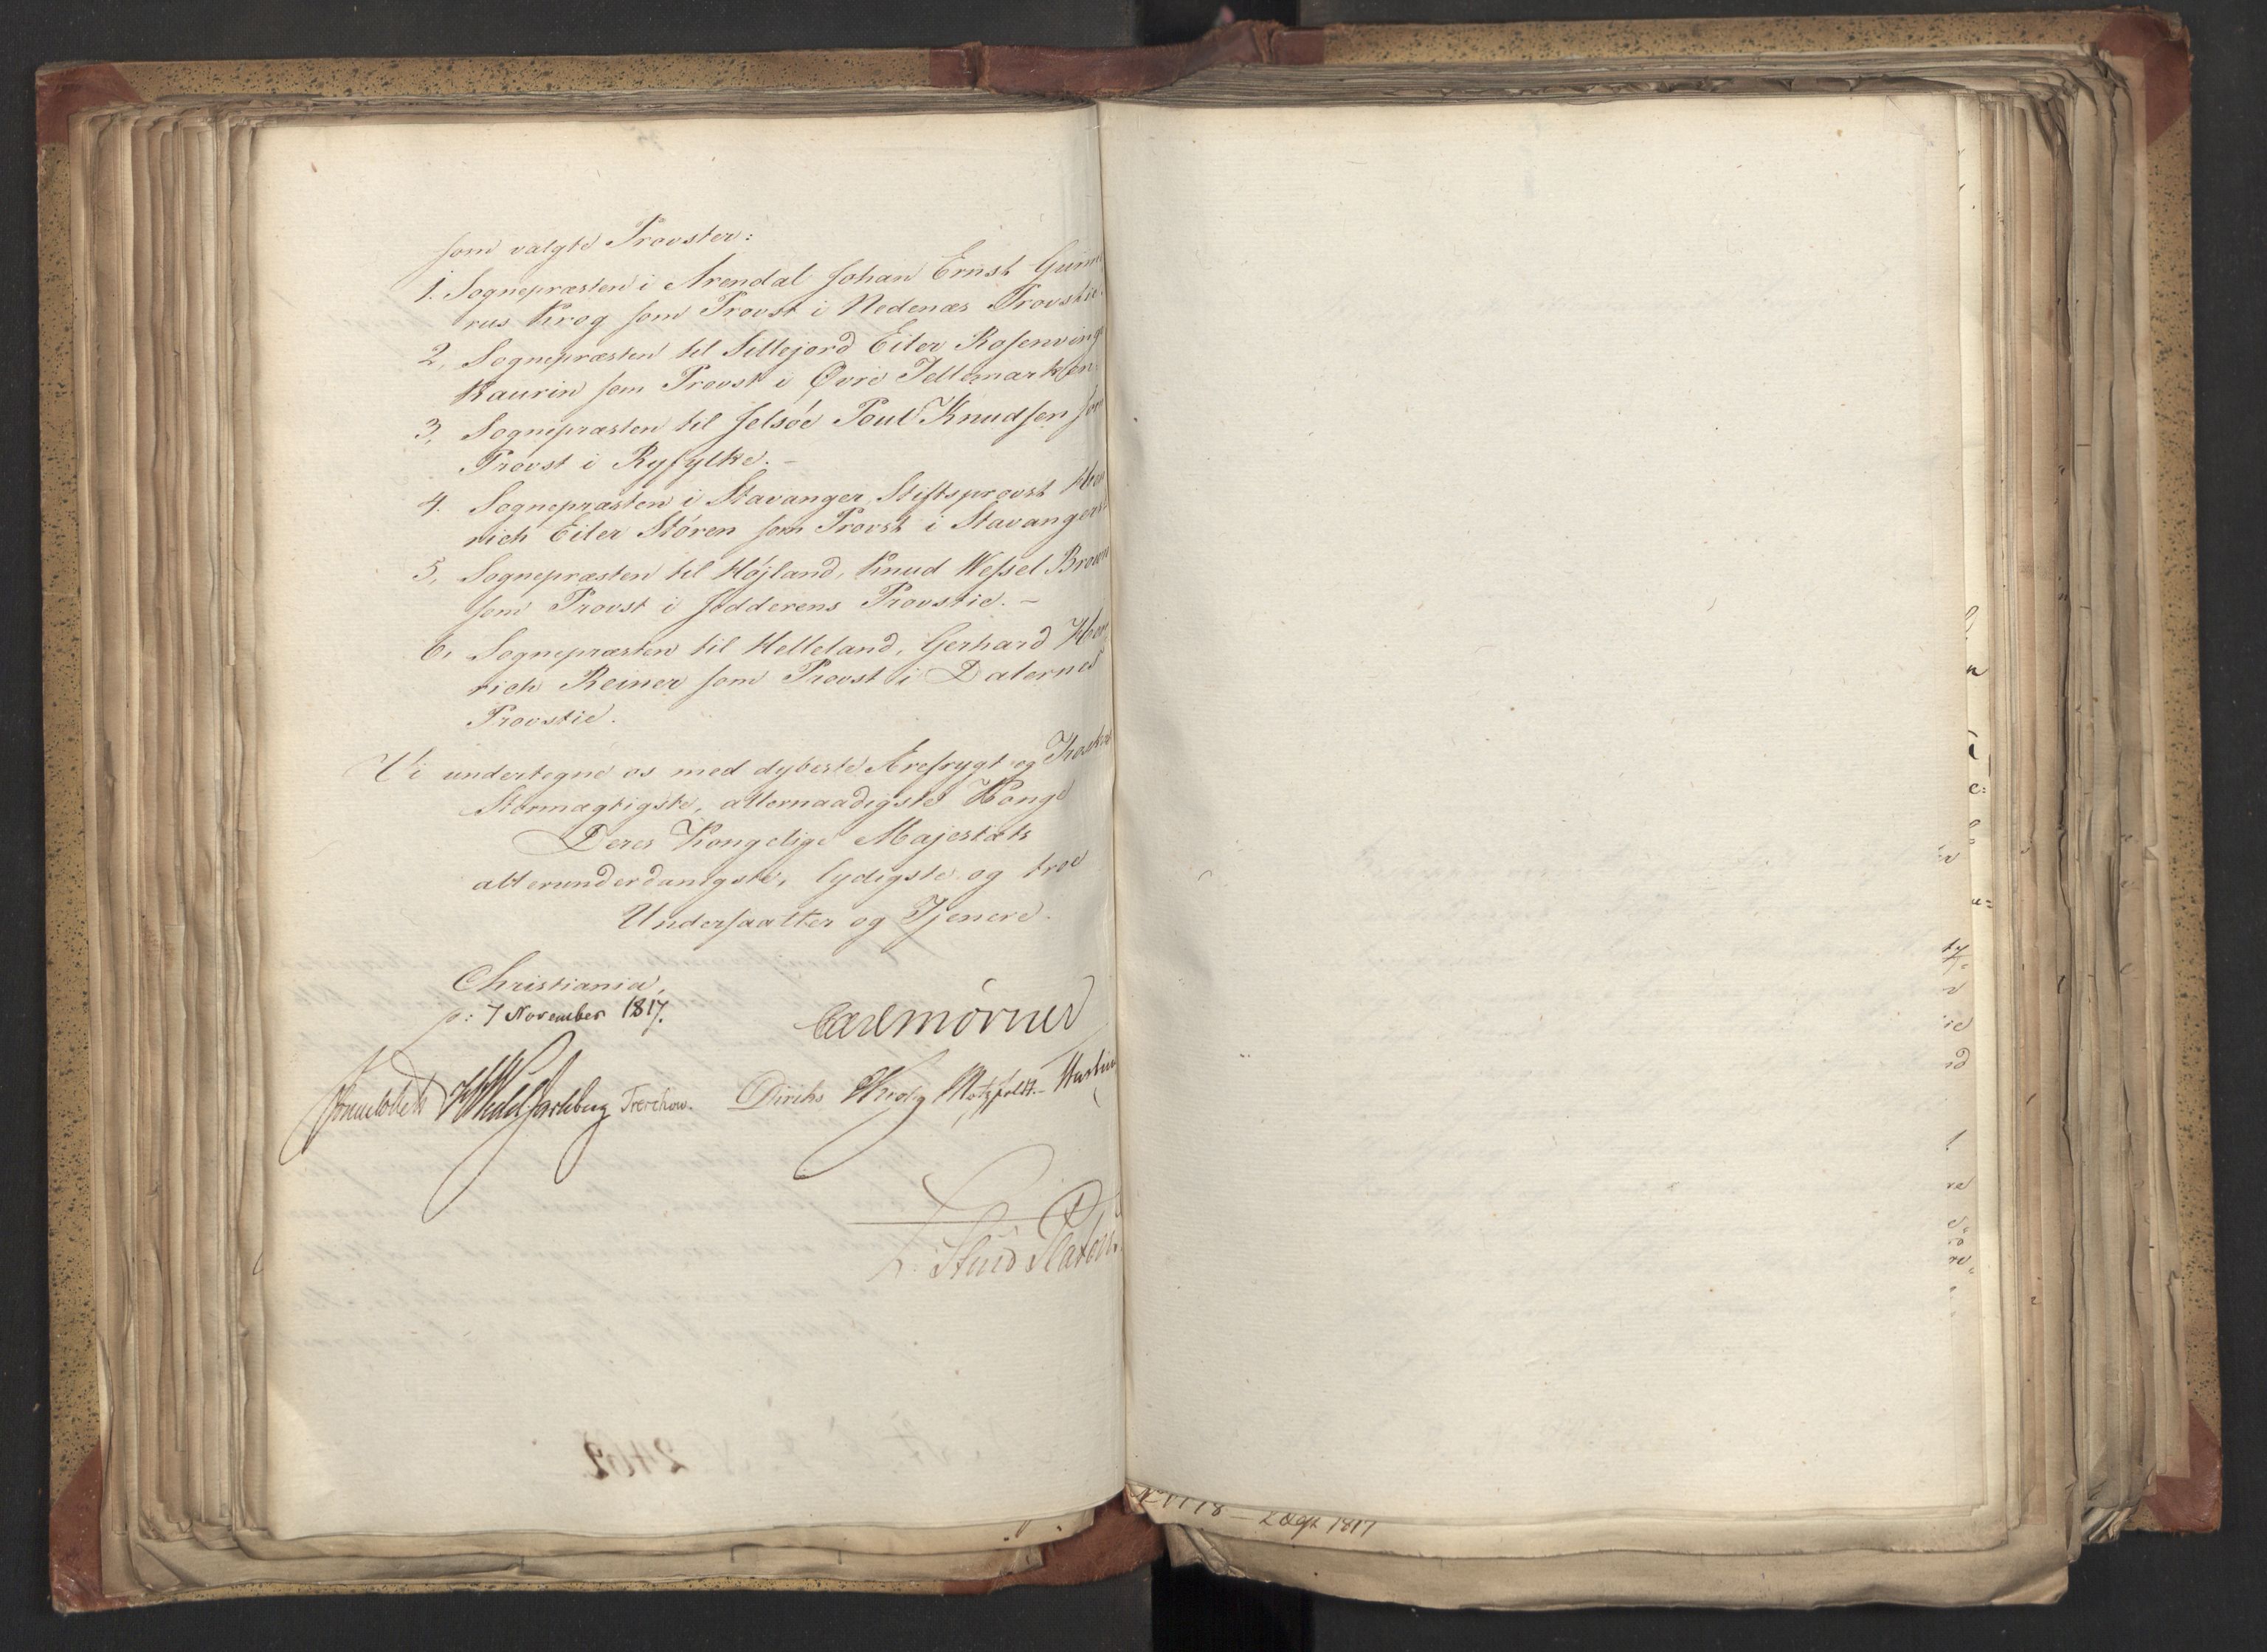 som valgte Provster:
1. Sognepræsten i Arendal Johan Ernst Gunne
rus Krog som Provst i Nedenæs Provstie.
2, Sognepræsten til Sillejord Eiler Rosenvinge
Kaurin som Provst i Øvre Tellemarken.
3, Sognepræsten til Jelsöe Poul Knudsen som
Provst i Ryfylke. –
4. Sognepræsten i Stavanger, Stiftsprovst
rich Eiler Stören som Provst i Stavangers
5, Sognepræsten til Höjland, Knud Wessel Brown
som Provst i Jedderens Provstie. –
6, Sognepræsten til Helleland, Gerhard Hen
rich Reiner som Provst i Dalernes
Provstie.
Vi undertegne os med dybeste Ærefrygt og
Stormægtigste, allernaadigste Konge
Deres Kongelige Majestæts
allerunderdanigste, lydigste og troe
Undersaatter og Tjenere.
Christiania,
7 November 1817.
Carl Mörner
Sommerhielm HWedel Jarlsberg Treschow. Diriks Krog Motzfeldt
2462
1118 – 2 Sept 1817